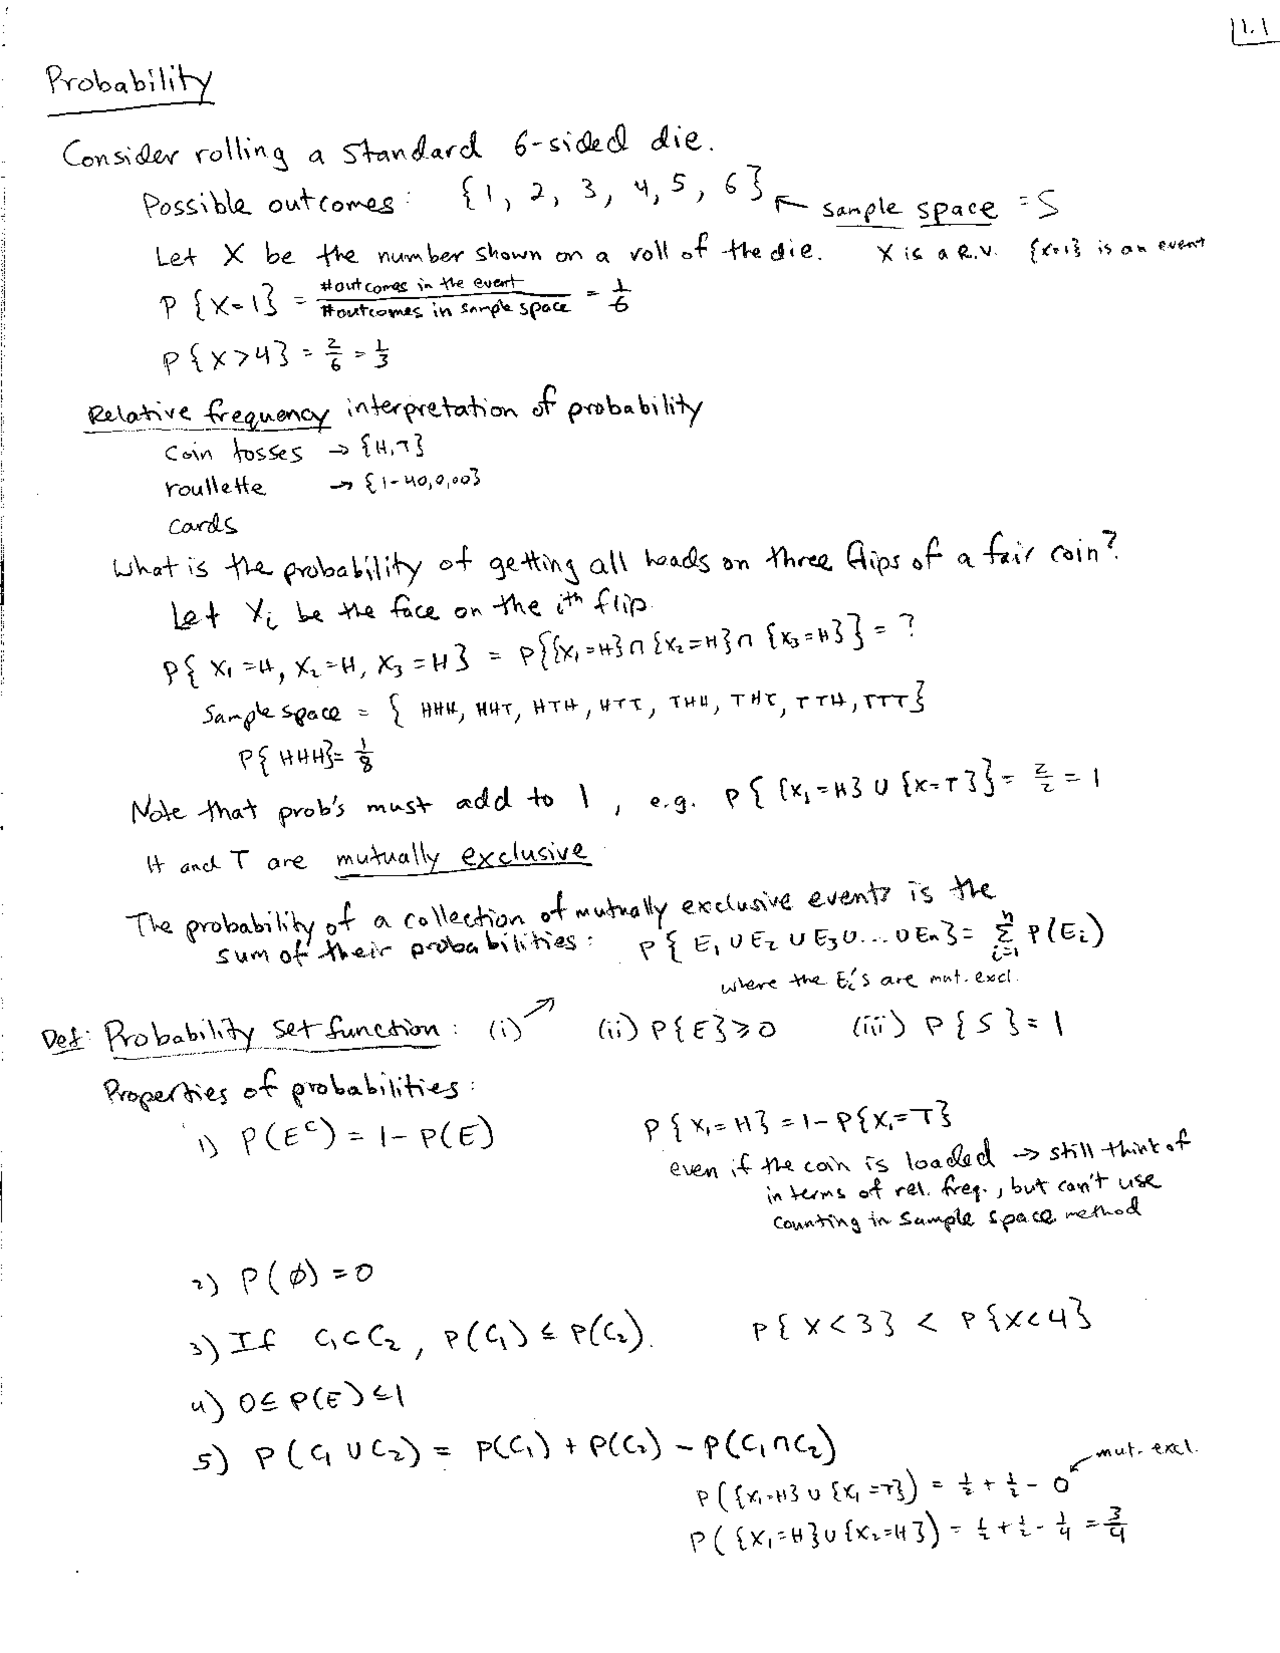 1.1
Probability
Consider rolling a standard 6-sided die.
Possible outcomes: {1, 2, 3, 4, 5, 6} ↖ sample space = S
Let X be the number shown on a roll of the die. X is a R.V. {X=1} is an event
P{X=1} = #outcomes in the event / #outcomes in sample space = 1/6
P{X>4} = 2/6 = 1/3
Relative frequency interpretation of probability
coin tosses → {H,T}
roullette → {1-40,0,00}
cards
What is the probability of getting all heads on three flips of a fair coin?
Let Xi be the face on the ith flip.
P{X1=H, X2=H, X3=H} = P{{X1=H}∩{X2=H}∩{X3=H}} = ?
Sample space = {HHH, HHT, HTH, HTT, THH, THT, TTH, TTT}
P{HHH}= 1/8
Note that prob's must add to 1, e.g. P{{X1=H}∪{X=T}} = 2/2 = 1
H and T are mutually exclusive
The probability of a collection of mutually exclusive events is the
sum of their probabilities: P{E1∪E2∪E3∪...∪En} = Σ i=1 n P(Ei)
where the Ei's are mut. excl.
Def: Probability set function: (i) ↗ (ii) P{E}≥0 (iii) P{S}=1
Properties of probabilities:
1) P(E^c) = 1-P(E) P{X1=H} = 1-P{X1=T}
even if the coin is loaded → still think of
in terms of rel. freq., but can't use
counting in sample space method
2) P(∅)=0
3) If C1⊂C2, P(C1) ≤ P(C2). P{X<3} < P{X<4}
4) 0≤P(E)≤1
5) P(C1∪C2) = P(C1)+P(C2)-P(C1∩C2)
mut. excl.
P({X1=H}∪{X1=T}) = 1/2 + 1/2 - 0
P({X1=H}∪{X2=H}) = 1/2 + 1/2 - 1/4 = 3/4